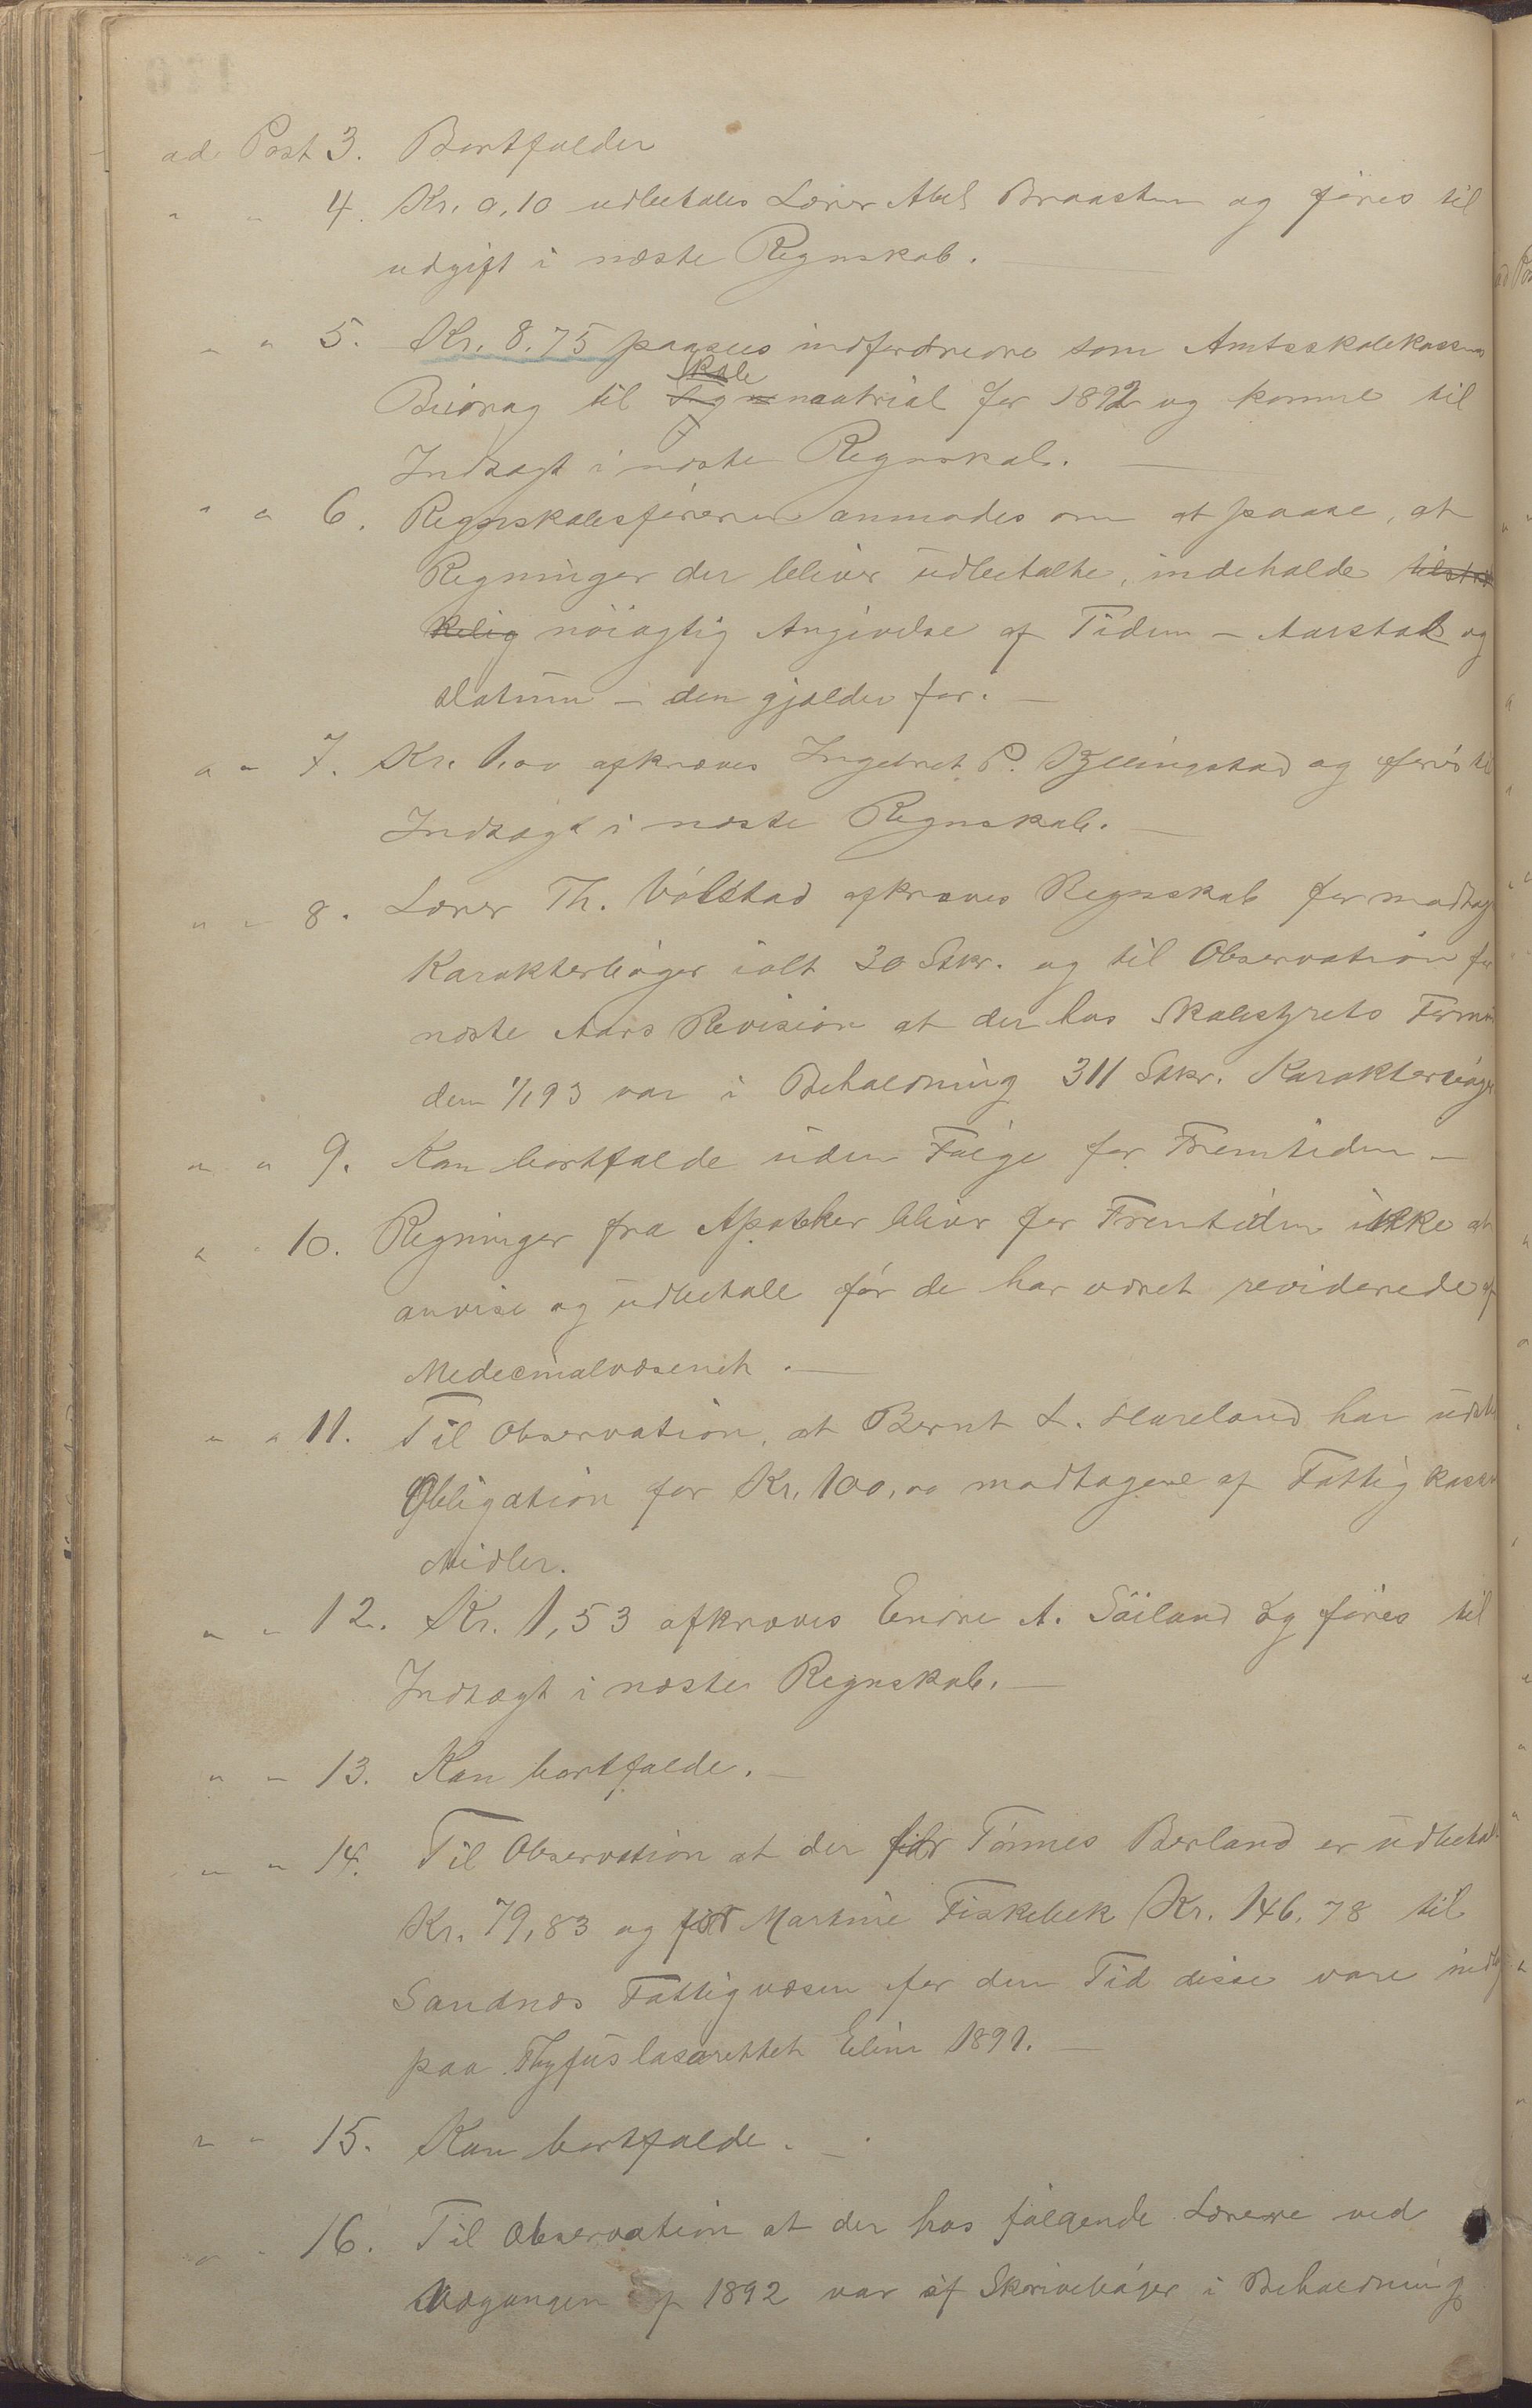 ad. Post 3. Bortfalder
" " 4. Kr. 0,10 udbetales Lærer Abel Braasten og föres til
udgift i næste Regnskab.
" " 5. Kr. 8.75 paasees indfordrede som Amtsskolekassens
Bidrag til Skole matrial for 1892 og komme til
Indtægt i næste Regnskab.
" " 6. Regnskabsföreren anmodes om at paase, at
Regninger der bliver udbetalte, indeholde tilstræk
kelig nöiagtig Angivelse af Tiden - Aarstal og
Datum - den gjælder for.
" " 7. Kr. 1.00 afkræves Ingebret P. Bjellingstad og föres til
Indtægt i næste Regnskab.
" " 8. Lærer Th. Volstad afkræves Regnskab for modtag
Karakterböger ialt 30 Stkr. og til Observation for
næste Aars Revision at der hos Skolestyrets Formn
den 1/1 93 var i Behaldning 311 Stkr. Karakterböge
" " 9. Kan bortfalde uden Fölge for Fremtiden -
" " 10. Regninger fra Apotheker bliver for Fremtiden ikke at
anvise og udbetale för de har været reviderede af
Medecinalvæsenet.
" " 11. Til Observation, at Bernt L. Hareland har udst
Obligation for Kr. 100,00 modtagene af Fattigkasse
Midler.
" " 12. Kr. 1,53 afkræves Endre A. Söiland og föres til
Indtægt i næste Regnskab.
" " 13. Kan bortfalde.
" " 14. Til Observation at der for Tönnes Berland er udbetal
Kr. 79,83 og for Martine Fiskebek Kr. 146,78 til
Sandnæs Fattigvæsen for den Tid disse vare indl
paa Thyfuslasarettet Elim 1891.
" " 15. Kan bortfalde.
" " 16. Til Observation at der hos fölgende Lærere ved
Udgangen af 1892 var af Skriveböger i Behaldning